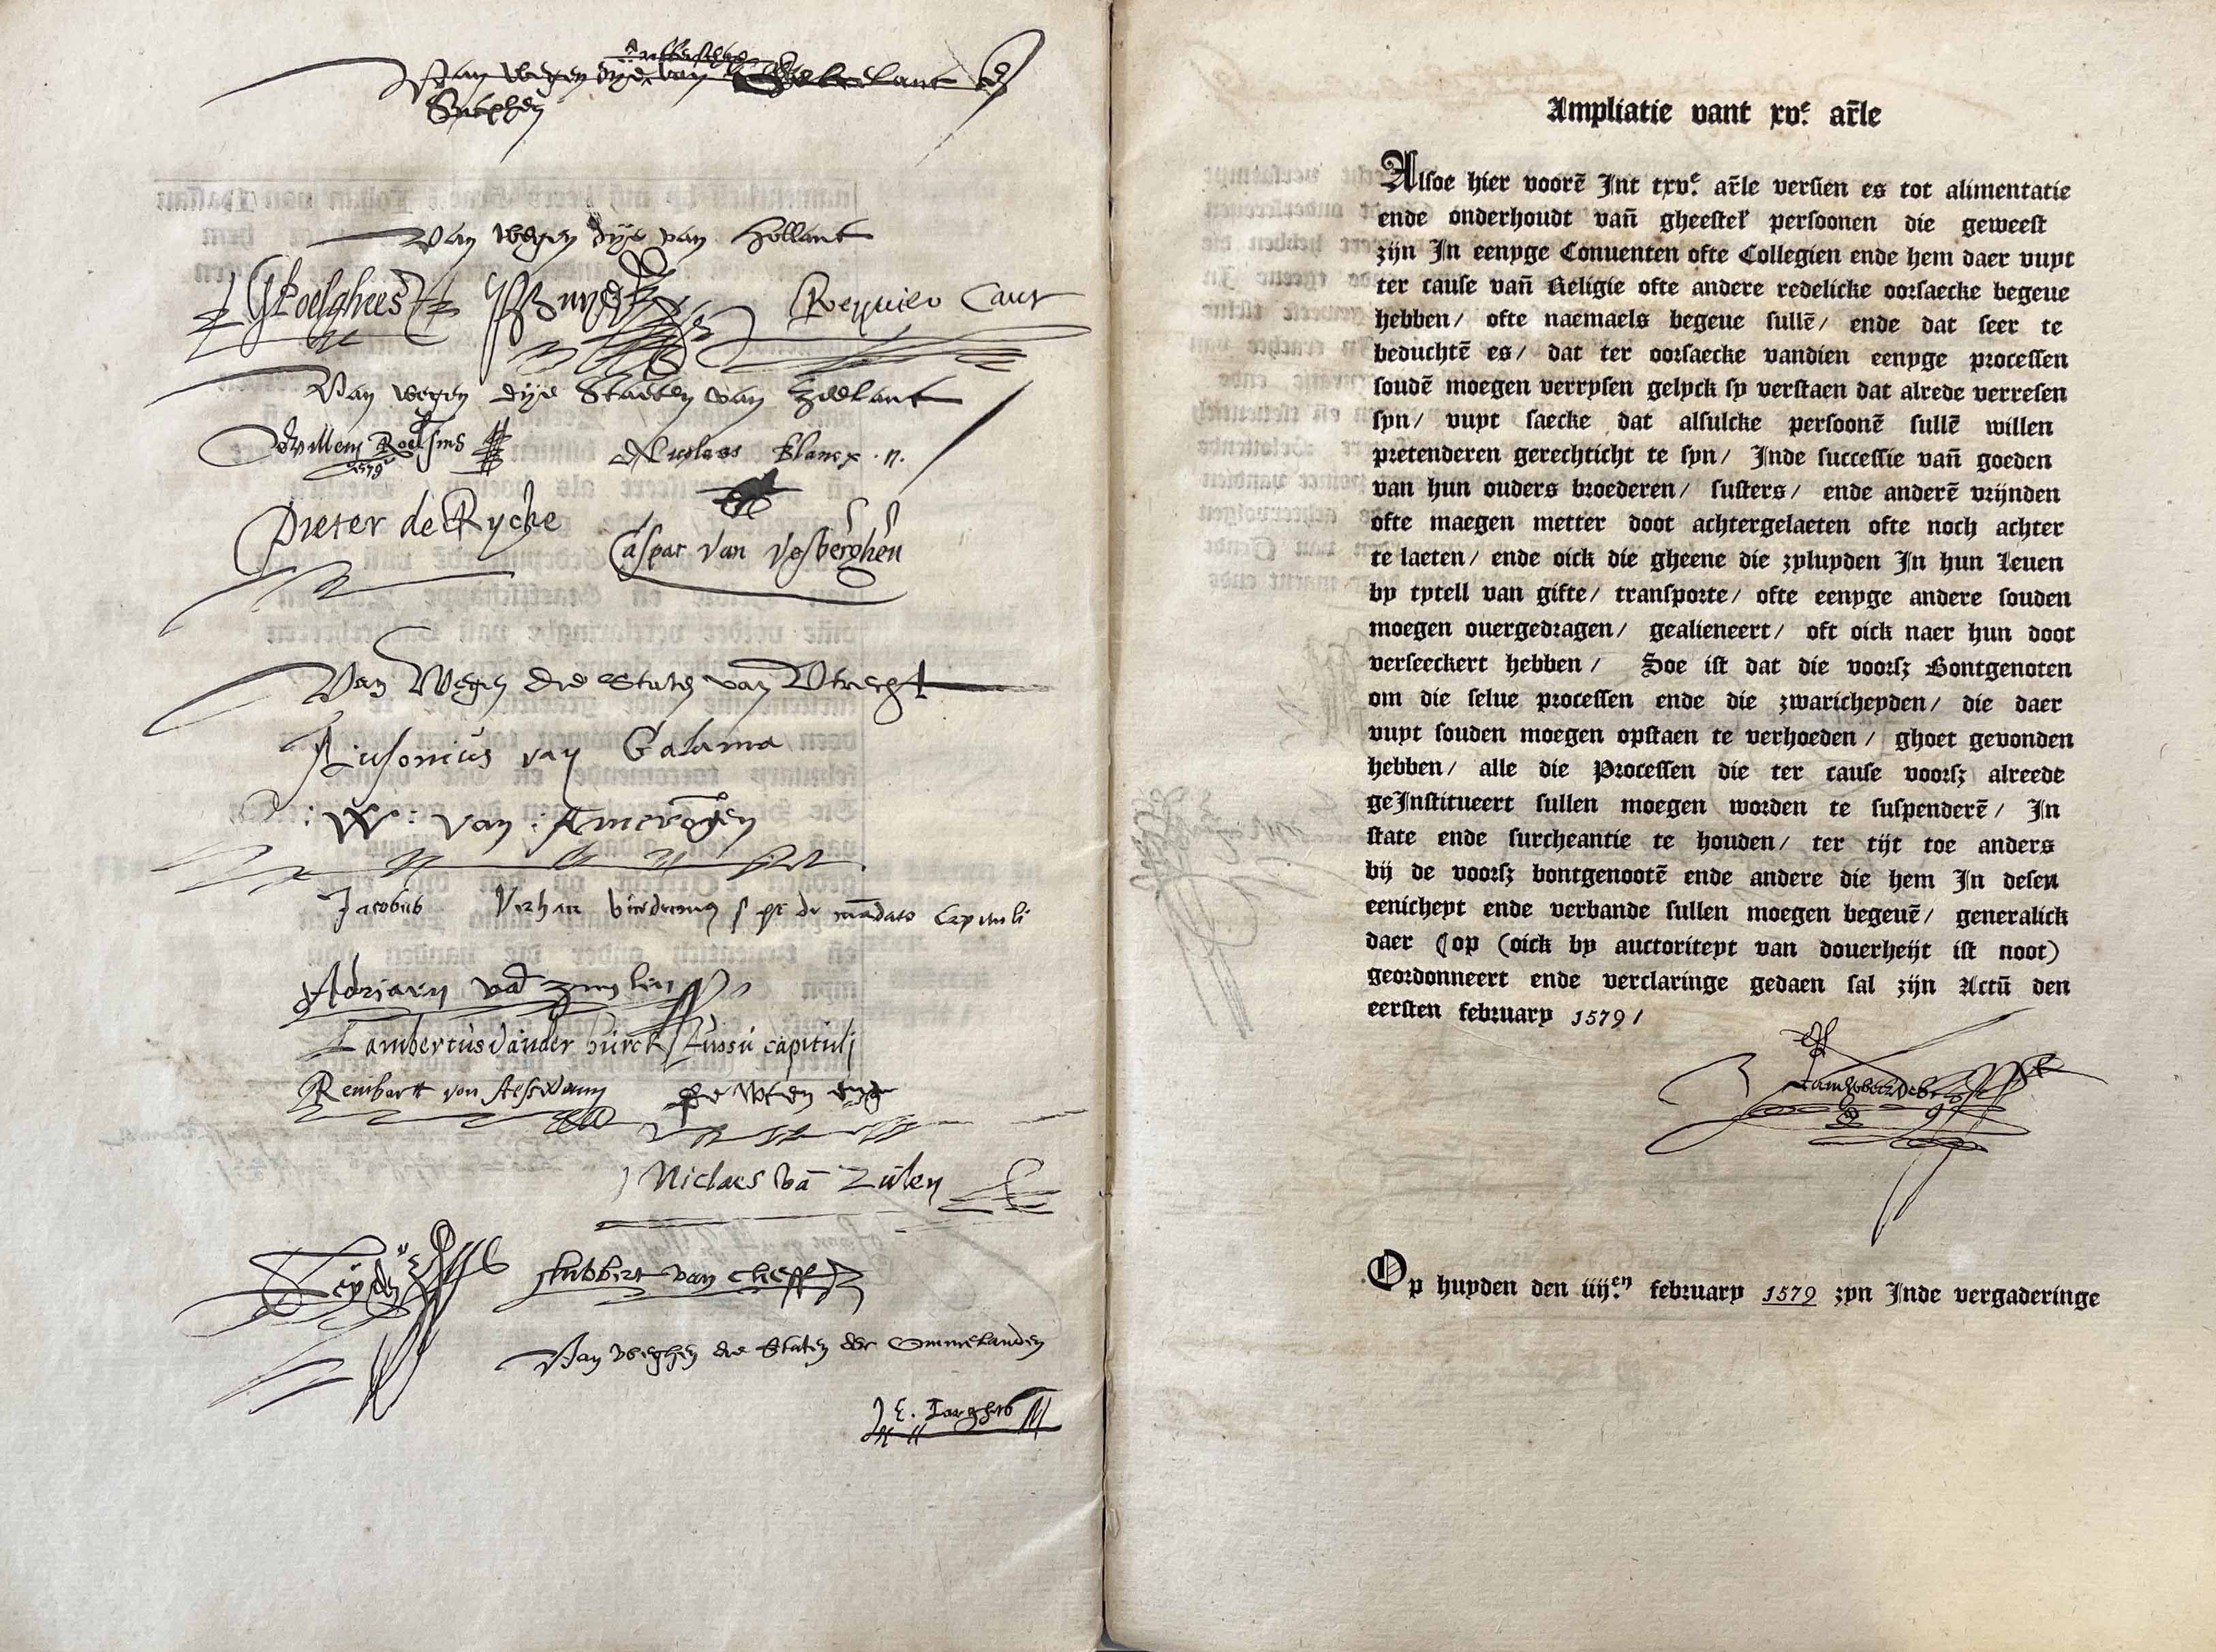 Van wegen dye van Gelrelant
Sutphen
Van wegen dye van Hollant
G Poelghees P Buys Reynier Cant
Van wegen dye Staeten van Zeelant
Willem Roelsius Nicolaes Blancx .n.
1579
Pieter de Rycke Caspar van Vosberghen
Van Wegen die Staten van Utrecht
Ausonius van Galama
: W : van : Amerōgen
Jacobus Verhaer de mādato Capituli
Adriaen vā Zuylen
Lambertus vander burch Iussu capituli
Reinhart von Aeswann De Wten eng
Niclaes vā Zulen
Leyden Lubbert van Cleeff
Van weghen die Staten der Ommelanden
E. Jarghes
Ampliatie vant xv.e ar̃le
Alsoe hier voorē Int txv.e ar̃le versien es tot alimentatie
ende onderhoudt vañ gheestelꝛ persoonen die geweest
zijn In eenyge Conuenten ofte Collegien ende hem daer vuyt
ter cause vañ Religie ofte andere redelicke oorsaecke begeue
hebben/ ofte naemaels begeue sullē/ ende dat seer te
beduchtē es/ dat ter oorsaecke vandien eenyge processen
soudē moegen verrysen gelyck sy verstaen dat alrede verresen
syn/ vuyt saecke dat alsulcke persoonē sullē willen
pretenderen gerechticht te syn/ Inde successie vañ goeden
van hun ouders broederen/ susters/ ende anderē vrijnden
ofte maegen metter doot achtergelaeten ofte noch achter
te laeten/ ende oick die gheene die zyluyden In hun Leuen
by tytell van gifte/ transporte/ ofte eenyge andere souden
moegen ouergedragen/ gealieneert/ oft oick naer hun doot
verseeckert hebben/ Soe ist dat die voorsz Bontgenoten
om die selue processen ende die zwaricheyden/ die daer
vuyt souden moegen opstaen te verhoeden/ ghoet gevonden
hebben/ alle die Processen die ter cause voorsz alreede
geInstitueert sullen moegen worden te suspenderē/ In
state ende surcheantie te houden/ ter tijt toe anders
bij de voorsz bontgenootē ende andere die hem In desen
eenicheyt ende verbande sullen moegen begeuē/ generalick
daer (op (oick by auctoriteyt van douerheijt ist noot)
geordonneert ende verclaringe gedaen sal zijn Actū den
eersten february 1579/
Lamzweerde
Op huyden den iiij.en february 1579 zyn Inde vergaderinge